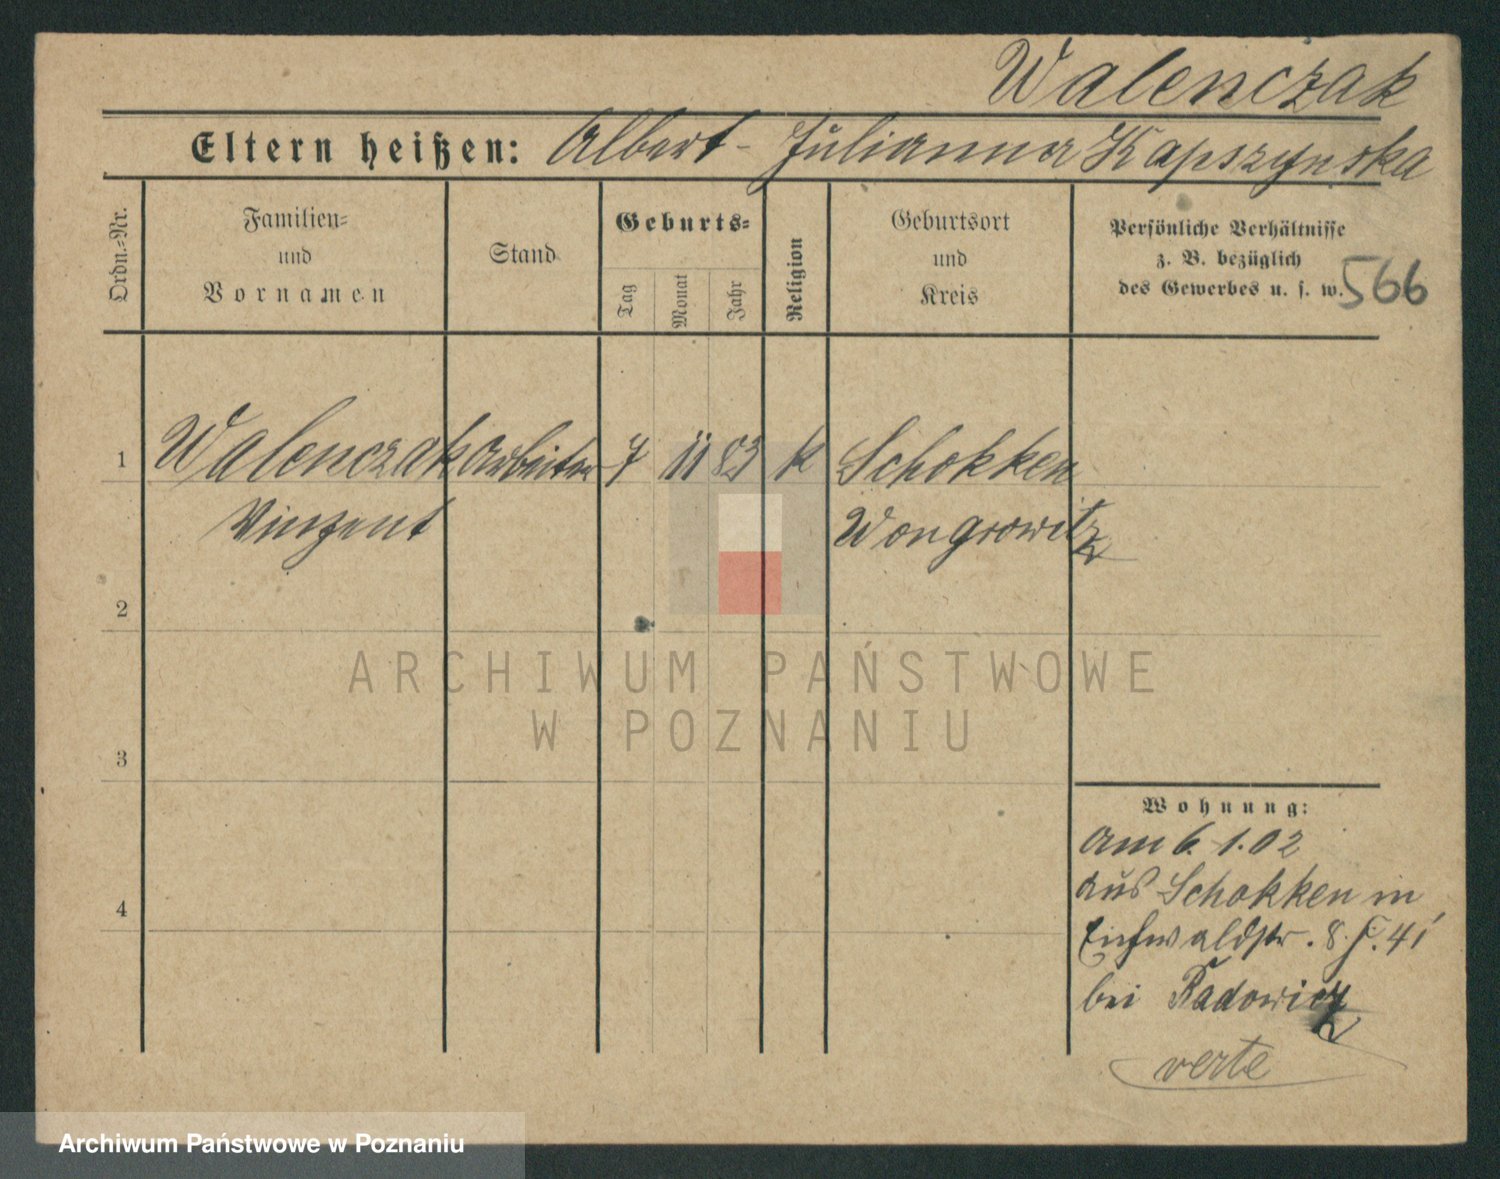 Walenczak
Eltern heißen: Albert - Julianna Kapszynska
Ordn.=Nr.
Familien=
und
Vornamen
Stand
Geburts=
Tag
Monat
Jahr
Religion
Geburtsort
und
Kreis
Persönliche Verhältnisse
z. B. bezüglich
des Gewerbes u. s. w.
566
1 Walenczak Arbeiter 7 11 83 k Schokken
Vinzent Wongrowitz
2
3
4
ARCHIWUM PAŃSTWOWE
W POZNANIU
Wohnung:
am 6. 1. 02
aus Schokken in
Eichwaldstr. 8. 41
bei Radowicz
verte
Archiwum Państwowe w Poznaniu